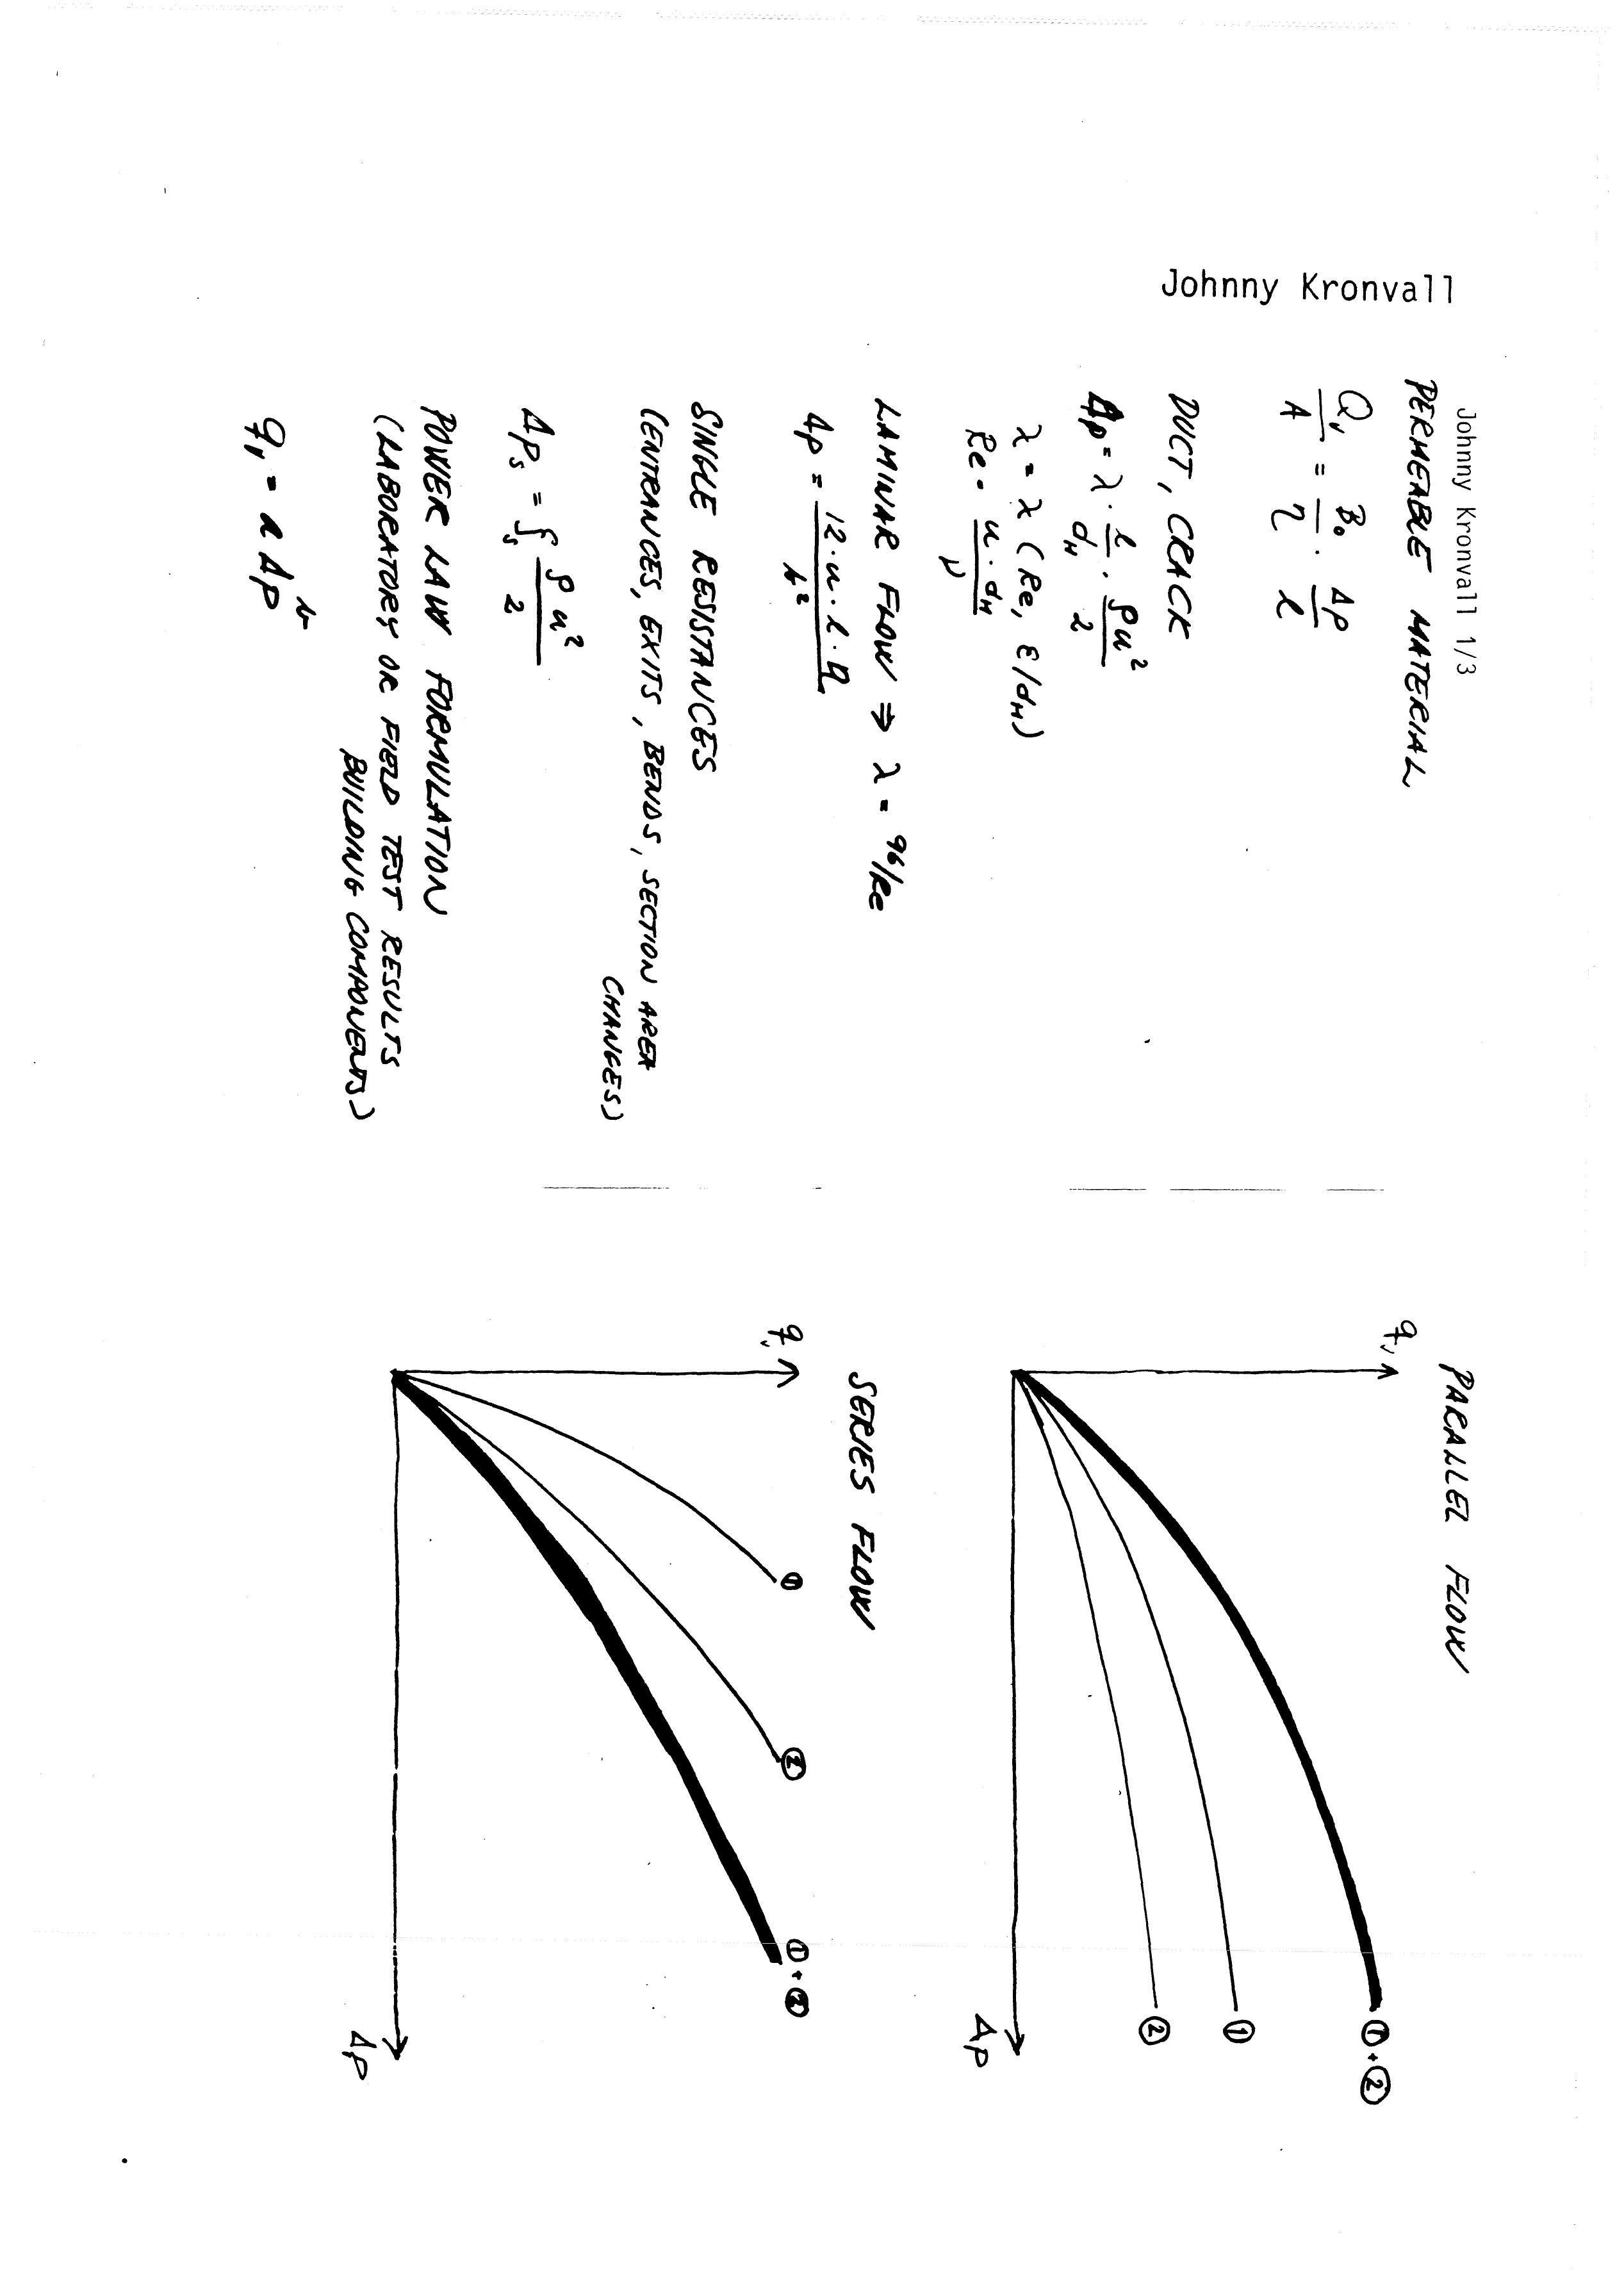 Johnny Kronvall
Johnny Kronvall 1/3
PERMEABLE MATERIAL
Qv/A = B₀/η · Δp/l
DUCT, CRACK
Δp = λ · l/dH · ρu²/2
λ = λ (Re, ε/dH)
Re = u · dH/ν
LAMINAR FLOW ⇒ λ = 96/Re
Δp = 12 · u · l · η/b²
SINGLE RESISTANCES
(ENTRANCES, EXITS, BENDS, SECTION AREA
CHANGES)
Δps = ζs ρu²/2
POWER LAW FORMULATION
(LABORATORY OR FIELD TEST RESULTS
BUILDING COMPONENTS)
qv = a Δp^b
PARALLEL FLOW
qv
① + ②
①
②
Δp
SERIES FLOW
qv
①
②
① + ②
Δp